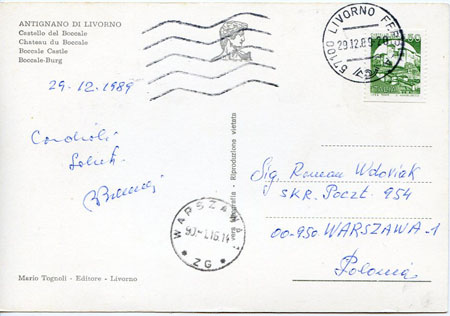 ANTIGNANO DI LIVORNO
Castello del Boccale
Chateau du Boccale
Boccale Castle
Boccale-Burg
29.12.1989
Cordiali
Saluti
57100 LIVORNO FERR
29.12.89
50
Riproduzione vietata
Sig. Roman Wdowiak
SKR. Poczt. 954
00-950 WARSZAWA-1
Polonia
WARSZAWA 1
90-1.16.14
* ZG *
Mario Tognoli - Editore - Livorno